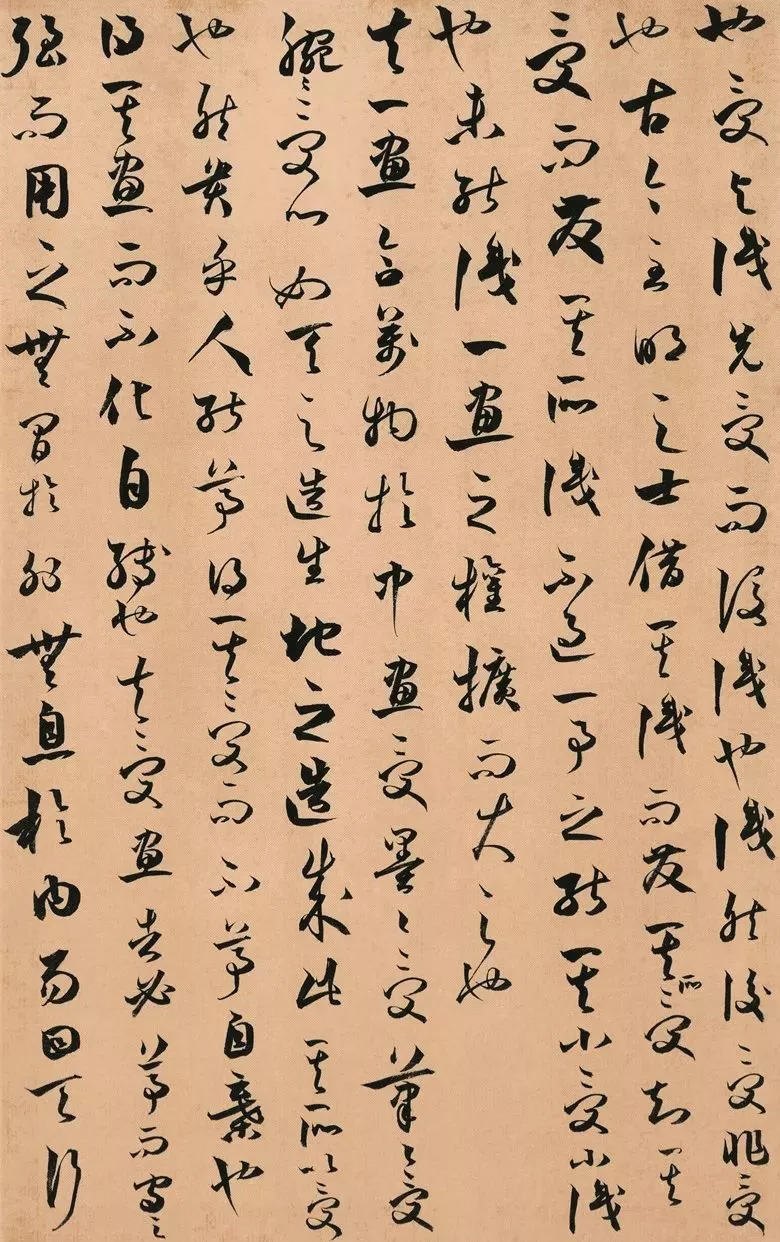 也受與識先受而後識也識然後受非受
也古今至明之士借其識而發其所受知其
受而發其所識不過一事之能其小受小識
也未能識一畫之權擴而大之也
夫一畫含萬物於中畫受墨〻受筆〻受
腕〻受心如天之造生地之造成此其所以受
也然貴乎人能尊得其受而不尊自棄也
得其畫而不化自縛也夫受畫者必尊而守之
強而用之無間於外無息於內易曰天行